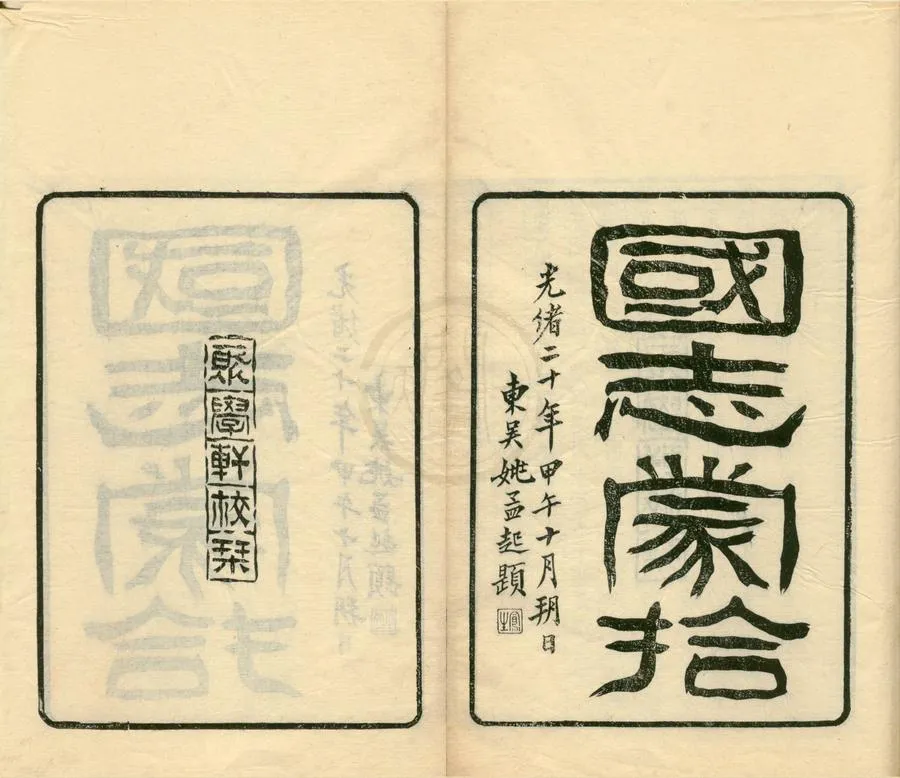 國志蒙拾
光緒二十年甲午十月朔日
東吳姚孟起題
鳳生
聚學軒校栞